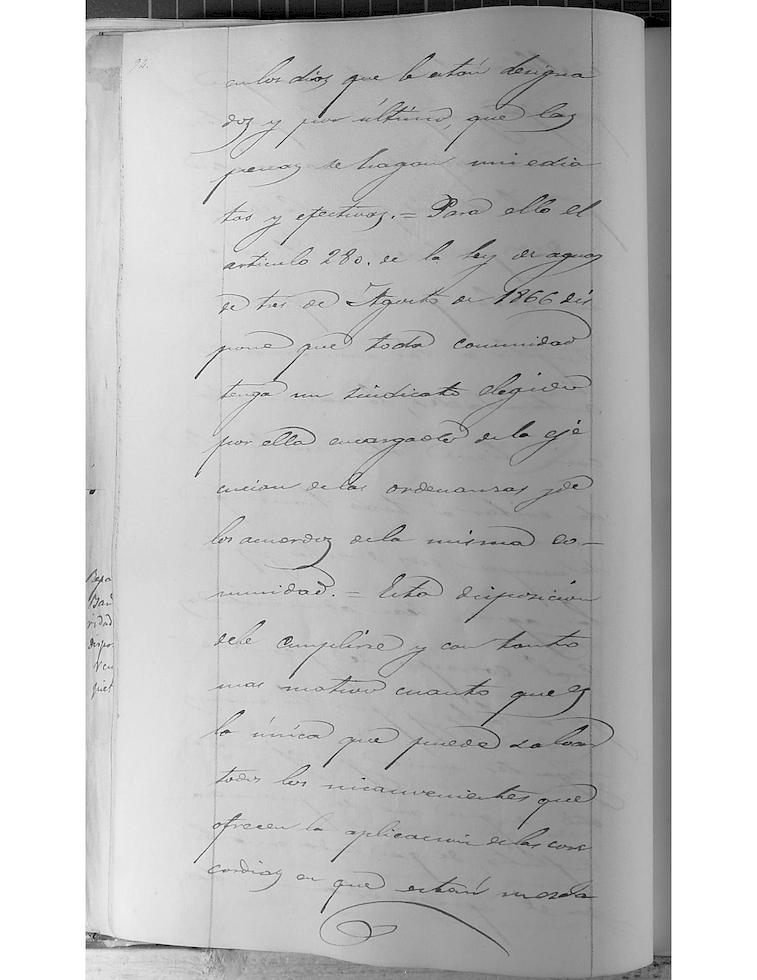 94.
en los dias que le estan designa
dos y por último, que las
penas se hagan inmedia
tas y efectivas. = Para ello el
articulo 280. de la ley de aguas
de tres de Agosto de 1866 dis
pone que toda comunidad
tenga un sindicato elegido
por ella encargado de la eje
cucion de las ordenanzas y de
los acuerdos de la misma co-
munidad. = Esta disposicion
debe cumplirse y con tanto
mas motivo cuanto que es
la única que puede salvar
todos los inconvenientes que
ofrecen la aplicacion de las con
cordias en que estan